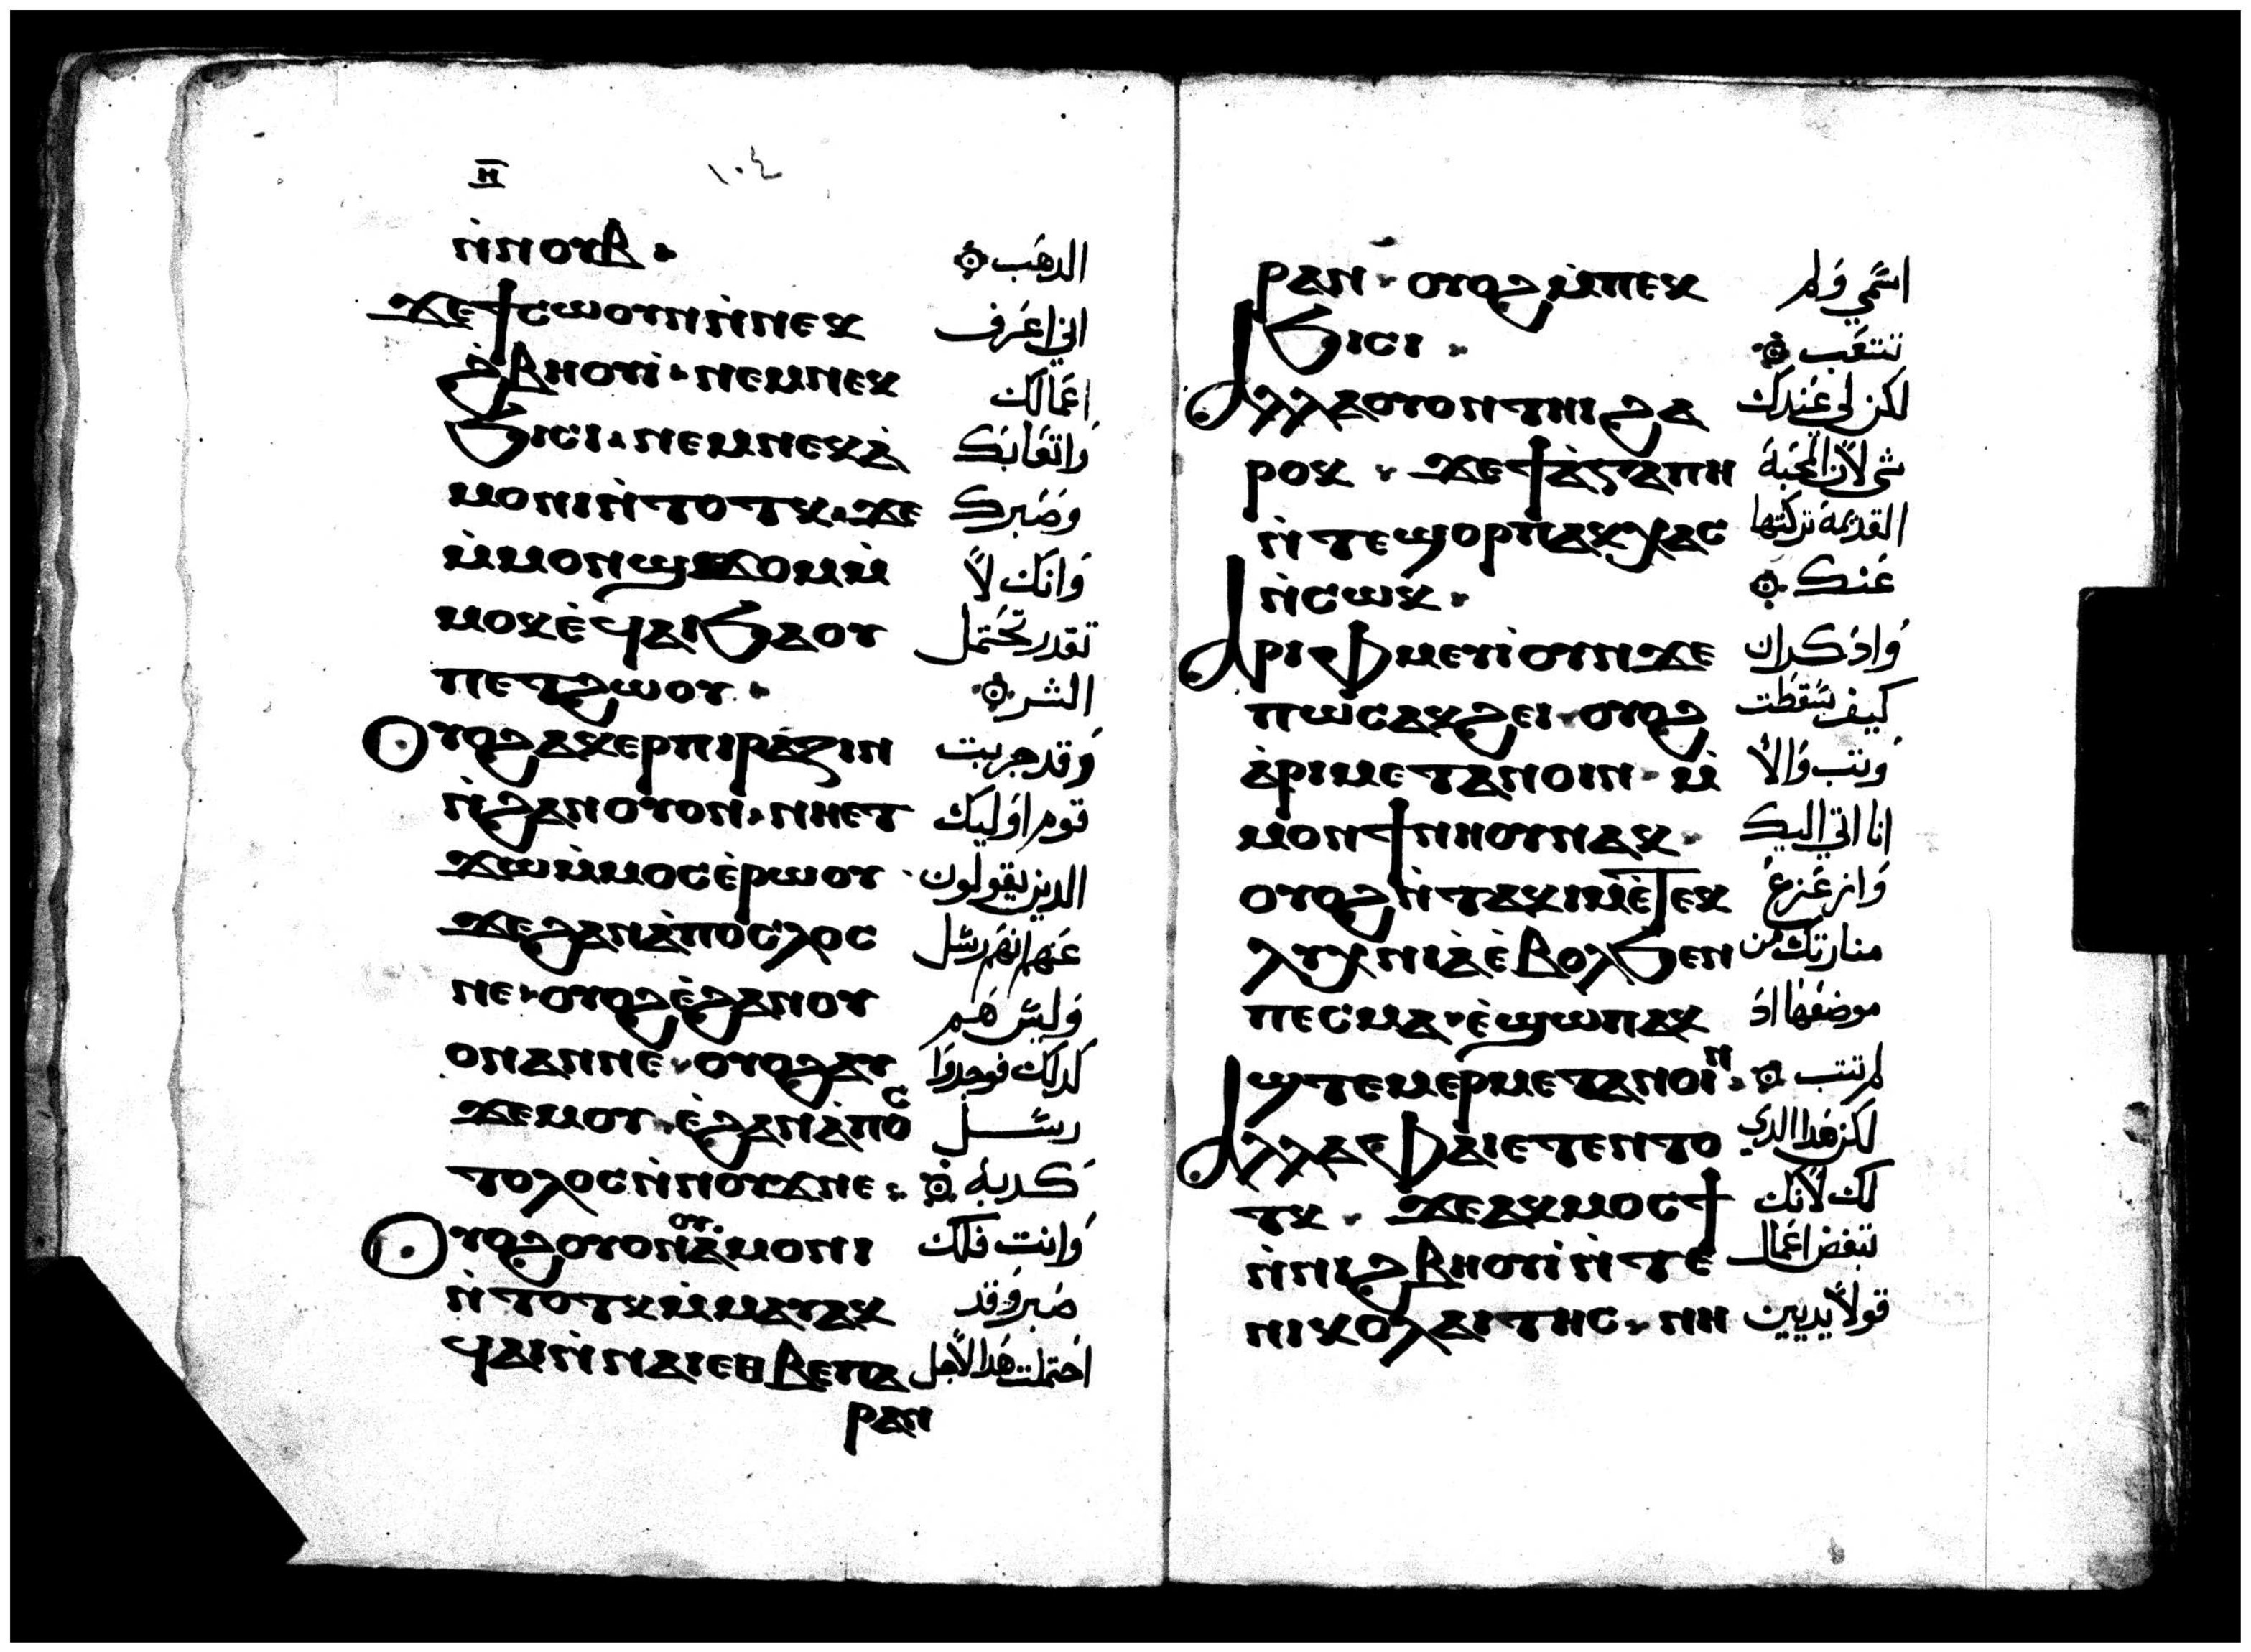 ⲏ̅ ١٠٤
ⲛ̀ⲛⲟⲩⲃ · الدهَب
ϫⲉϯⲥⲱⲟⲩⲛⲛ̀ⲛⲉⲕ اني اعَرف
ϩ̀ⲃⲏⲟⲩⲓ̀ · ⲛⲉⲙⲛⲉⲕ اعَمالك
ϧⲓⲥⲓ · ⲛⲉⲙⲛⲉⲕⲁ̀ وَاتعَابك
ⲙⲟⲛⲓⲛ̀ⲧⲟⲧⲕ · ϫⲉ وَصَبرك
ⲙ̀ⲙⲟⲛϣϫⲟⲙⲙ̀ وَانك لاَ
ⲙⲟⲕⲉ̀ϥⲁⲓϧⲁⲟⲩ تقدر تحَتمل
ⲡⲉⲧϩⲱⲟⲩ · الشر
ⲟⲩⲟϩⲁⲕⲉⲣⲡⲓⲣⲁⲍⲓⲛ وَقد جربت
ⲛ̀ϩⲁⲛⲟⲩⲟⲛ · ⲛⲏⲉⲧ قوم اوَليك
ϫⲱⲙ̀ⲙⲟⲥⲉ̀ⲣⲱⲟⲩ · الدين يقولون
ϫⲉϩⲁⲛⲁ̀ⲡⲟⲥⲗⲟⲥ عَنهم انهَم رسَل
ⲛⲉ · ⲟⲩⲟϩⲉ̀ϩⲁⲛⲟⲩ وَليسَ هَم
ⲟⲛⲁⲛⲛⲉ · ⲟⲩⲟϩⲁⲩ كدلك فوجدوَا
ϫⲉⲙⲟⲩ · ⲉ̀ϩⲁⲛⲁ̀ⲡⲟⲥ رسَل
ⲧⲟⲗⲟⲥⲛ̀ⲛⲟⲩϫⲛⲉ · كدبه
ⲟⲩⲟϩⲟⲩⲟⲛⲟⲩⲁ̀ⲙⲟⲛⲓ وَانت فلك
ⲛ̀ⲧⲟⲧⲕⲙ̀ⲙⲁⲩⲁⲕ صَبر وَقد
ϥⲁⲓⲛ̀ⲛⲁⲓⲉⲑⲃⲉⲡⲁ احَتملت هَدا لاجل
ⲣⲁⲛ
ⲣⲁⲛ · ⲟⲩⲟϩⲙ̀ⲡⲉⲕ اسَمي وَلم
ϧⲓⲥⲓ · تتعَب
ⲁⲗⲗⲁⲟⲩⲟⲛⲧⲏⲓϩⲁ لكن لي عَندك
ⲣⲟⲕ · ϫⲉϯⲁ̀ⲅⲁⲡⲏ شي لاَن المحَبة
ⲛ̀ⲧⲉϣⲟⲣⲡⲁⲕⲭⲁⲥ القديمة تركتها
ⲛ̀ⲥⲱⲕ · عَنك
ⲁⲣⲓⲫⲙⲉⲩⲓ̀ⲟⲩⲛϫⲉ وَادَكران
ⲡⲱⲥⲁⲕϩⲉⲓ · ⲟⲩⲟϩ كيف سَقطت
ⲁ̀ⲣⲓⲙⲉⲧⲁⲛⲟⲓⲛ · ⲙ̀ وَتب وَالا
ⲙⲟⲛϯⲛⲏⲟⲩⲛⲁⲕ · انا اتي اليك
ⲟⲩⲟϩⲛ̀ⲧⲁⲕⲓⲙⲉ̀ⲧⲉⲕ وَانزعَزعَ
ⲗⲩⲭⲛⲓⲁ̀ⲉ̀ⲃⲟⲗϧⲉⲛ منارتك من
ⲡⲉⲥⲙⲁ · ⲉ̀ϣⲱⲡⲁⲕ موضعَهَا ادَ
ϣⲧⲉⲙⲉⲣⲙⲉⲧⲁⲛⲟⲓⲛ · لم تتب
ⲁⲗⲗⲁⲫⲁⲓⲉⲧⲉⲛⲧⲟ لكن هَدا الدي
ⲧⲕ · ϫⲉⲁⲕⲙⲟⲥϯ لك لاَنك
ⲛ̀ⲛⲓϩⲃⲏⲟⲩⲓ̀ⲛ̀ⲧⲉ تبغض اعَمال
ⲛⲓⲕⲟⲗⲁⲓⲧⲏⲥ · ⲛⲏ قولاَيديين